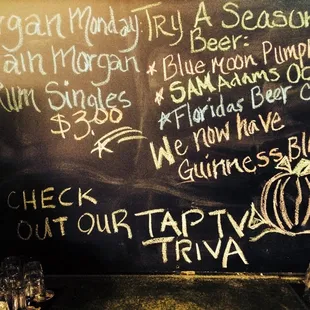 rgan Monday
ain Morgan
Rum Singles
$3.00
Try A Season
Beer:
* Blue Moon Pumpk
* SAM Adams Oc
* Floridas Beer C
We now have
Guinness Bl
CHECK
OUT OUR TAP TV
TRIVA